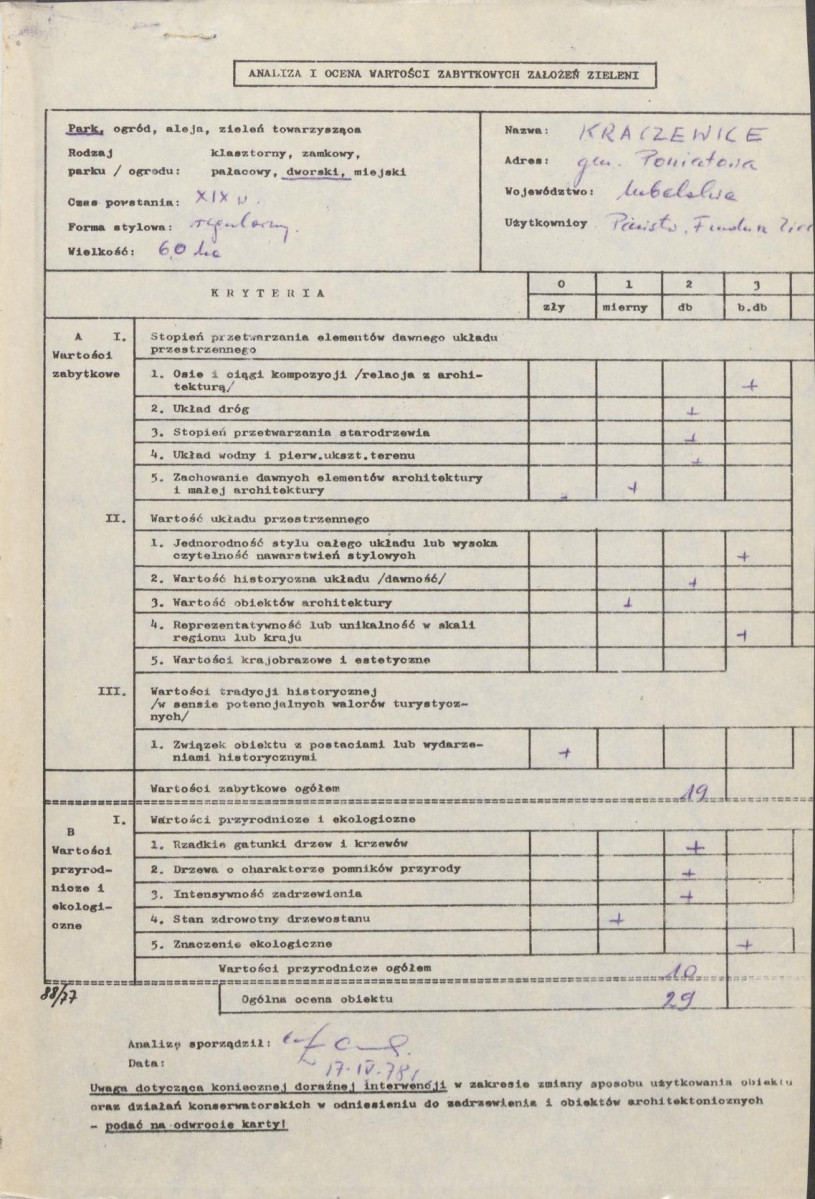 ANALIZA I OCENA WARTOŚCI ZABYTKOWYCH ZAŁOŻEŃ ZIELENI
Park, ogród, aleja, zieleń towarzysząca
Rodzaj klasztorny, zamkowy,
parku / ogrodu: pałacowy, dworski, miejski
Czas powstania: XIX w.
Forma stylowa: regularny.
Wielkość: 6,0 ha
Nazwa: KRACZEWICE
Adres: gm. Poniatowa
Województwo: lubelskie
Użytkownicy Państw. Fundusz
KRYTERIA
0 1 2 3
zły mierny db b.db
A I. Stopień przetwarzania elementów dawnego układu
przestrzennego
Wartości
zabytkowe
1. Osie i ciągi kompozycji /relacja z archi-
tekturą/ +
2. Układ dróg +
3. Stopień przetwarzania starodrzewia +
4. Układ wodny i pierw.ukszt.terenu +
5. Zachowanie dawnych elementów architektury
i małej architektury +
II. Wartość układu przestrzennego
1. Jednorodność stylu całego układu lub wysoka
czytelność nawarstwień stylowych +
2. Wartość historyczna układu /dawność/ +
3. Wartość obiektów architektury +
4. Reprezentatywność lub unikalność w skali
regionu lub kraju +
5. Wartości krajobrazowe i estetyczne
III. Wartości tradycji historycznej
/w sensie potencjalnych walorów turystycz-
nych/
1. Związek obiektu z postaciami lub wydarze-
niami historycznymi +
Wartości zabytkowe ogółem 19
B I. Wartości przyrodnicze i ekologiczne
Wartości
przyrod-
nicze i
ekologi-
czne
1. Rzadkie gatunki drzew i krzewów +
2. Drzewa o charakterze pomników przyrody +
3. Intensywność zadrzewienia +
4. Stan zdrowotny drzewostanu +
5. Znaczenie ekologiczne +
Wartości przyrodnicze ogółem 10
88/77
Ogólna ocena obiektu 29
Analizę sporządził:
Data: 17.IV.78r
Uwaga dotycząca koniecznej doraźnej interwencji w zakresie zmiany sposobu użytkowania obiektu
oraz działań konserwatorskich w odniesieniu do zadrzewienia i obiektów architektonicznych
- podać na odwrocie karty!